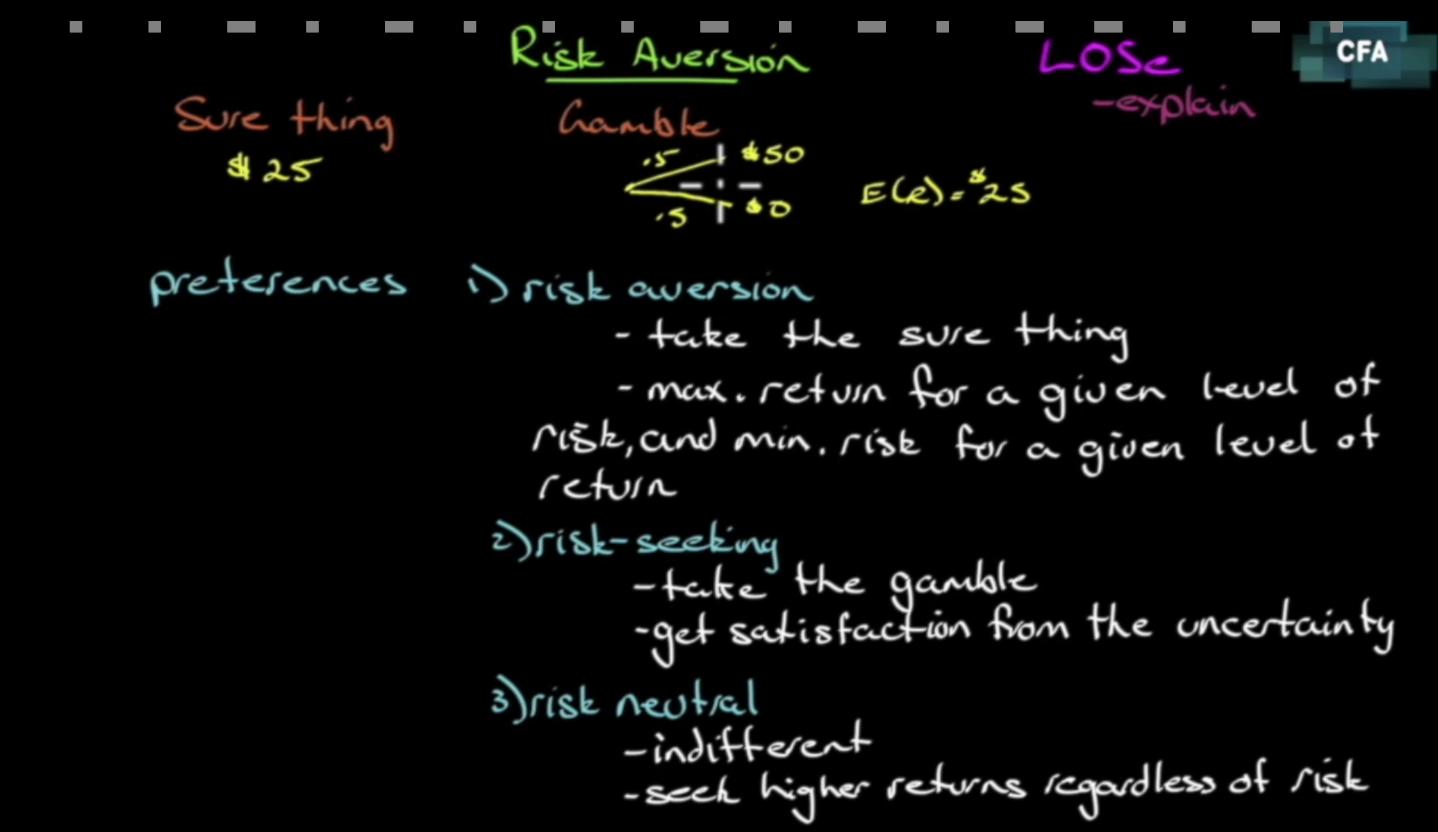 Risk Aversion
LOSe
CFA
-explain
Sure thing
Gamble
$25
.5
$50
.5
$0
E(R)=$25
preferences
1) risk aversion
- take the sure thing
- max. return for a given level of
risk, and min. risk for a given level of
return
2) risk-seeking
- take the gamble
- get satisfaction from the uncertainty
3) risk neutral
- indifferent
- seek higher returns regardless of risk